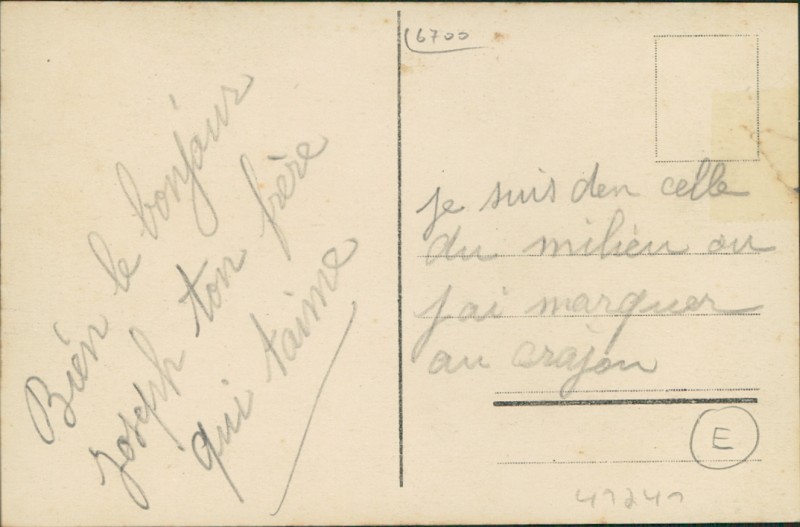 Bien le bonjour
Joseph ton frère
qui taime
6700
je suis den celle
du milieu ou
j'ai marquer
au crajon
E
41241